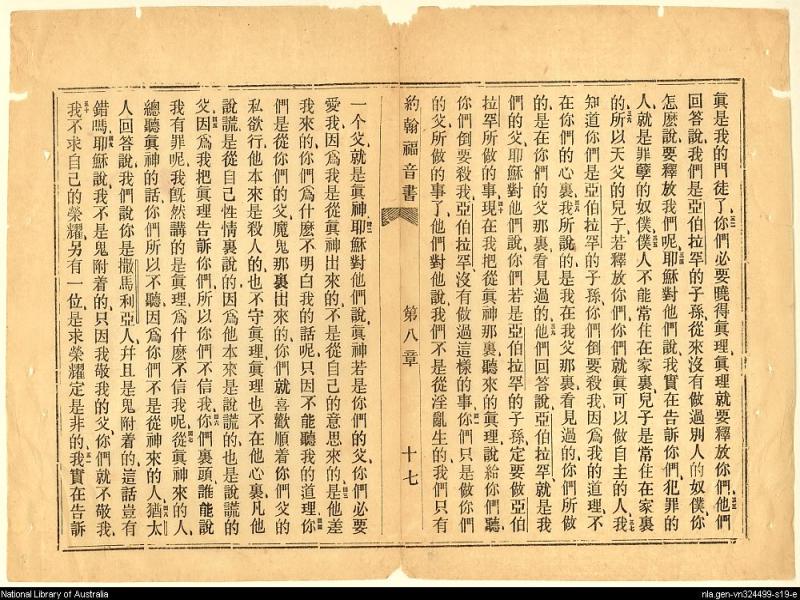 眞是我的門徒了、你們必要曉得眞理、眞理就要釋放你們、他們
回答說、我們是亞伯拉罕的子孫、從來沒有做過別人的奴僕、你
怎麽說、要釋放我們呢、耶穌對他們說、我實在告訴你們、犯罪的
人、就是罪孽的奴僕、僕人不能常住在家裏、兒子是常住在家裏
的、所以天父的兒子、若釋放你們、你們就眞可以做自主的人、我
知道你們是亞伯拉罕的子孫、你們倒要殺我、因爲我的道理、不
在你們的心裏、我所說的、是我在我父那裏看見過的、你們所做
的、是在你們的父那裏看見過的、他們回答說、亞伯拉罕、就是我
們的父、耶穌對他們說、你們若是亞伯拉罕的子孫、定要做亞伯
拉罕所做的事、現在我把從眞神那裏聽來的眞理、說給你們聽、
你們倒要殺我、亞伯拉罕沒有做過這樣的事、你們只是做你們
的父所做的事了、他們對他說、我們不是從淫亂生的、我們只有
約翰福音書 第八章 十七
一个父、就是眞神、耶穌對他們說、眞神若是你們的父、你們必要
愛我、因爲我是從眞神出來的、不是從自己的意思來的、是他差
我來的、你們爲什麽不明白我的話呢、只因不能聽我的道理、你
們是從你們的父魔鬼那裏出來的、你們就喜歡順着你們父的
私欲行、他本來是殺人的、也不守眞理、眞理也不在他心裏、凡他
說謊、是從自己性情裏說的、因爲他本來是說謊的、也是說謊的
父、因爲我把眞理告訴你們、所以你們不信我、你們裏頭、誰能說
我有罪呢、我旣然講的是眞理、爲什麽不信我呢、從眞神來的人、
總聽眞神的話、你們所以不聽、因爲你們不是從神來的人、猶太
人回答說、我們說你是撒馬利亞人、幷且是鬼附着的、這話豈有
錯嗎、耶穌說、我不是鬼附着的、只因我敬我的父、你們就不敬我、
我不求自己的榮耀、另有一位、是求榮耀定是非的、我實在告訴
National Library of Australia
nla.gen-vn324499-s19-e